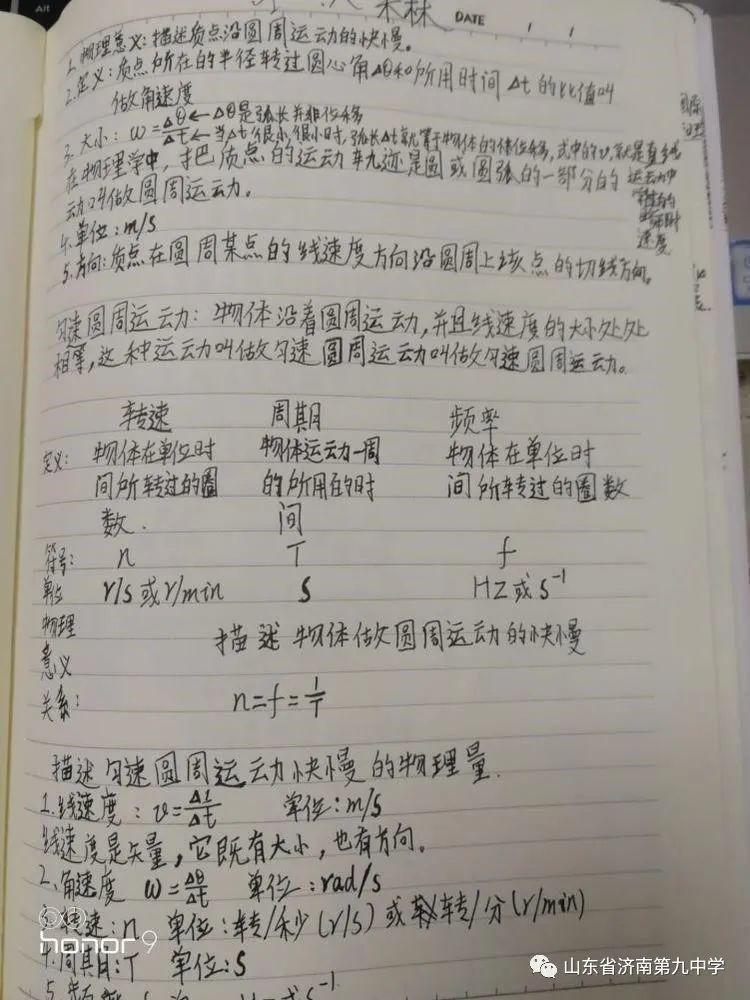 Alt
DATE / /
1.物理意义:描述质点沿圆周运动的快慢。
2.定义:质点所在的半径转过圆心角Δθ和所用时间Δt的比值叫
做角速度
3.大小: ω=Δθ/Δt ←Δθ是弧长并非位移
←当Δt很小很小时,弧长Δt就等于物体的位移,式中的v,就是直线
运动中
的瞬时
速度
在物理学中,把质点的运动轨迹是圆或圆弧的一部分的
运动叫做圆周运动。
4.单位:m/s
5.方向:质点在圆周某点的线速度方向沿圆周上该点的切线方向。
匀速圆周运动:物体沿着圆周运动,并且线速度的大小处处
相等,这种运动叫做匀速圆周运动叫做匀速圆周运动。
转速 周期 频率
定义: 物体在单位时 物体运动一周 物体在单位时
间所转过的圈 的所用的时 间所转过的圈数
数. 间
符号: n T f
单位 r/s或r/min s HZ或s⁻¹
物理
意义
描述物体做圆周运动的快慢
关系: n=f=1/T
描述匀速圆周运动快慢的物理量.
1.线速度:v=Δl/Δt 单位:m/s
线速度是矢量,它既有大小,也有方向。
2.角速度 ω=Δθ/Δt 单位:rad/s
3.转速:n 单位:转/秒(r/s)或转/分(r/min)
4.周期:T 单位:s
honor 9
山东省济南第九中学